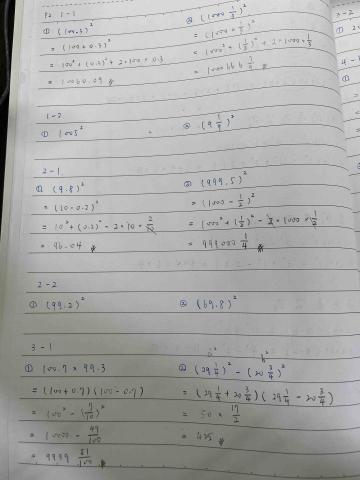 P2 1-1
① (100.3)²
= (100+0.3)²
= 100² + (0.3)² + 2×100×0.3
= 10060.09
② (1000 1/3)²
= (1000 + 1/3)²
= 1000² + (1/3)² + 2×1000×1/3
1-2
① 1005²
② (9 1/9)²
2-1
① (9.8)²
= (10-0.2)²
= 96.04
② (999.5)²
= (1000 - 1/2)²
= 1000² + (1/2)² - 2×1000×1/2
= 999000 1/4
2-2
① (99.2)²
② (69.8)²
3-1
① 100.7 × 99.3
= (100+0.7)(100-0.7)
= 100² - (7/10)²
= 10000 - 49/100
= 9999 51/100
a² b²
② (29 1/4)² - (20 3/4)²
= (29 1/4 + 20 3/4)(29 1/4 - 20 3/4)
= 50 × 17/2
= 425
3-2
①
4-1
①